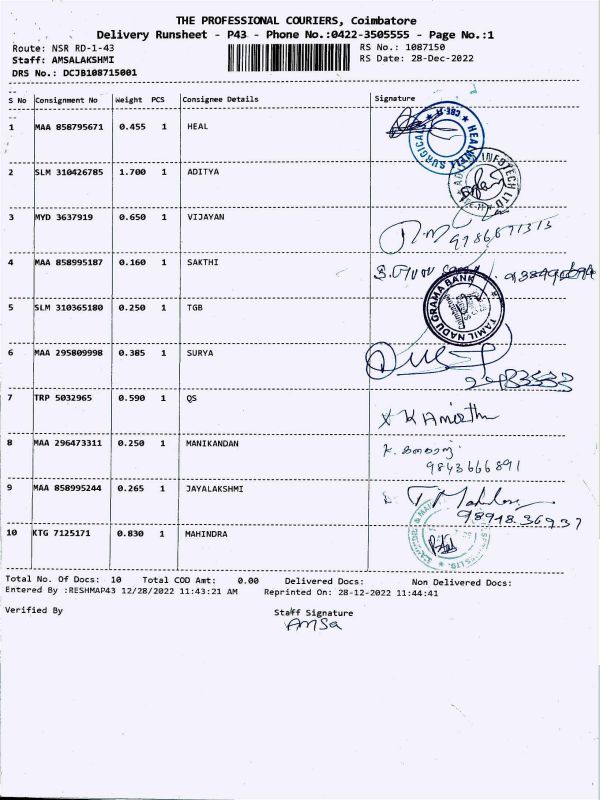 THE PROFESSIONAL COURIERS, Coimbatore
Delivery Runsheet - P43 - Phone No.:0422-3505555 - Page No.:1
Route: NSR RD-1-43
RS No.: 1087150
Staff: AMSALAKSHMI
RS Date: 28-Dec-2022
DRS No.: DCJB108715001
S No Consignment No Weight PCS Consignee Details Signature
1 MAA 858795671 0.455 1 HEAL
2 SLM 310426785 1.700 1 ADITYA
INFOTECH LTD
3 MYD 3637919 0.650 1 VIJAYAN
4 MAA 858995187 0.160 1 SAKTHI
5 SLM 310365180 0.250 1 TGB
TAMIL NADU GRAMA BANK
6 MAA 295809998 0.385 1 SURYA
7 TRP 5032965 0.590 1 QS
8 MAA 296473311 0.250 1 MANIKANDAN
9843666891
9 MAA 858995244 0.265 1 JAYALAKSHMI
10 KTG 7125171 0.830 1 MAHINDRA
Total No. Of Docs: 10 Total COD Amt: 0.00 Delivered Docs: Non Delivered Docs:
Entered By :RESHMAP43 12/28/2022 11:43:21 AM Reprinted On: 28-12-2022 11:44:41
Verified By Staff Signature
AMSa